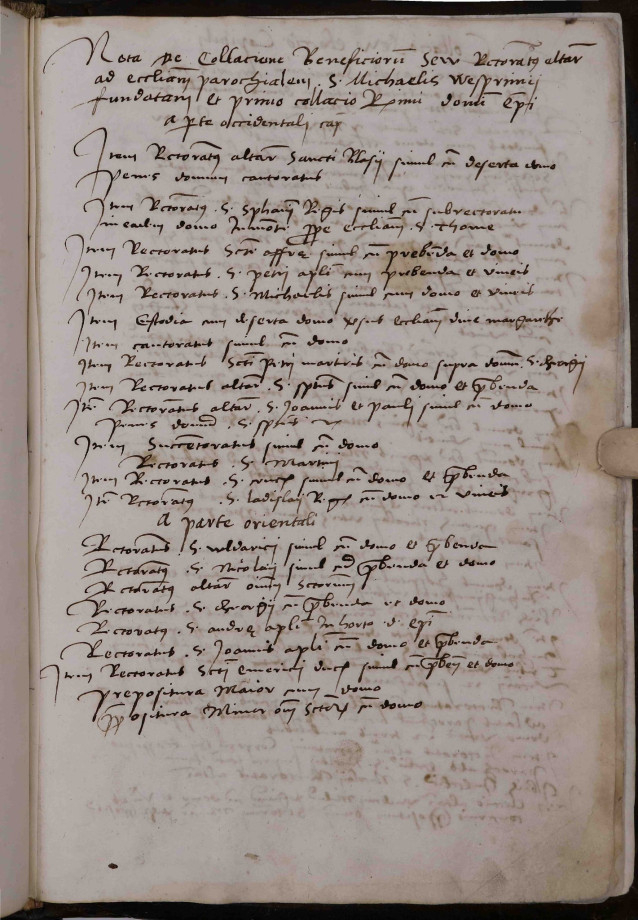 Nota de Collacione Beneficiorū Sew Rectoratꝰ altariū
ad eccliam parochialem .S. Michaelis Wesprimij
fundatam et primo collacio domī ep̄i
A pte occidentali
Item Rectoratꝰ altar̄ Sancti Blasij simul cū deserta domo
Penes domum cantoratus
Item Rectoratꝰ .S. Sthani Regis simul cū subrectoratu
in eadem domo ꝓpe eccliam .S. Thome
Item Rectoratus Scti affrę simul cū prebenda et domo
Item Rectoratus .S. petri apli cum prebenda et vineis
Item Rectoratus .S. Michaelis simul cum domo et vineis
Item Cstodia cum deserta domo versus eccliam diue margarethe
Item cantoratus simul cū domo
Item Rectoratus Scti Petri martiris cū domo supra domū .S. georgij
Item Rectoratus altar̄ .S. spūs simul cū domo et p̄benda
Itē Rectoratus altar̄ .S. Joannis et pauli simul cū domo
Penes domū .S. spūs
Item Succētoratus simul cū domo
Rectoratus .S. Martini
Item Rectoratus .S. crucis simul cū domo et p̄benda
Itē Rectoratꝰ .S. ladislai Regis cū domo et vineis
A parte orientali
Rectoratus .S. vldarici simul cū domo et p̄benda
Rectoratꝰ .S. Nicolai simul cū p̄benda et domo
Rectoratꝰ altar̄ omniū Sctorum
Rectoratus .S. georgij cū p̄benda et domo
Rectoratꝰ .S. andreę apli in horto d. ep̄i
Rectoratus .S. Joannis apli cū domo et p̄benda
Item Rectoratus Scti emerici ducis simul cū p̄ben̄ et domo
Prepositura Maior cum domo
p̄positura Minor om̄ Sctorꝝ cū domo